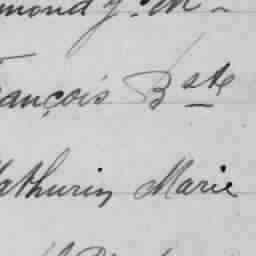 mond J. M
ançois Bste
athurin Marie